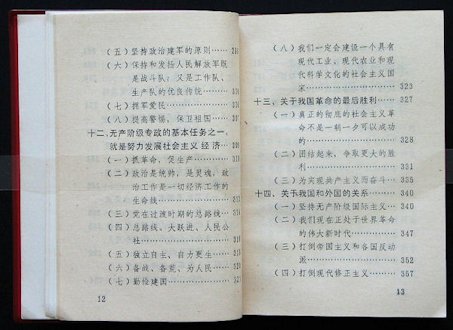 (五)坚持政治建军的原则……
(六)保持和发扬人民解放军既
是战斗队,又是工作队、
生产队的优良传统……
(七)拥军爱民……
(八)提高警惕,保卫祖国……
十二、无产阶级专政的基本任务之一,
就是努力发展社会主义经济……
(一)抓革命,促生产……
(二)政治是统帅,是灵魂,政
治工作是一切经济工作的
生命线……
(三)党在过渡时期的总路线……
(四)总路线、大跃进、人民公
社……
(五)独立自主、自力更生……
(六)备战、备荒、为人民……
(七)勤俭建国……
12
(八)我们一定会建设一个具有
现代工业、现代农业和现
代科学文化的社会主义国
家……323
十三、关于我国革命的最后胜利……327
(一)真正的彻底的社会主义革
命不是一朝一夕可以成功
的……328
(二)团结起来,争取更大的胜
利……331
(三)为实现共产主义而奋斗……335
十四、关于我国和外国的关系……340
(一)坚持无产阶级国际主义……340
(二)我们现在正处于世界革命
的伟大新时代……347
(三)打倒帝国主义和各国反动
派……352
(四)打倒现代修正主义……357
13